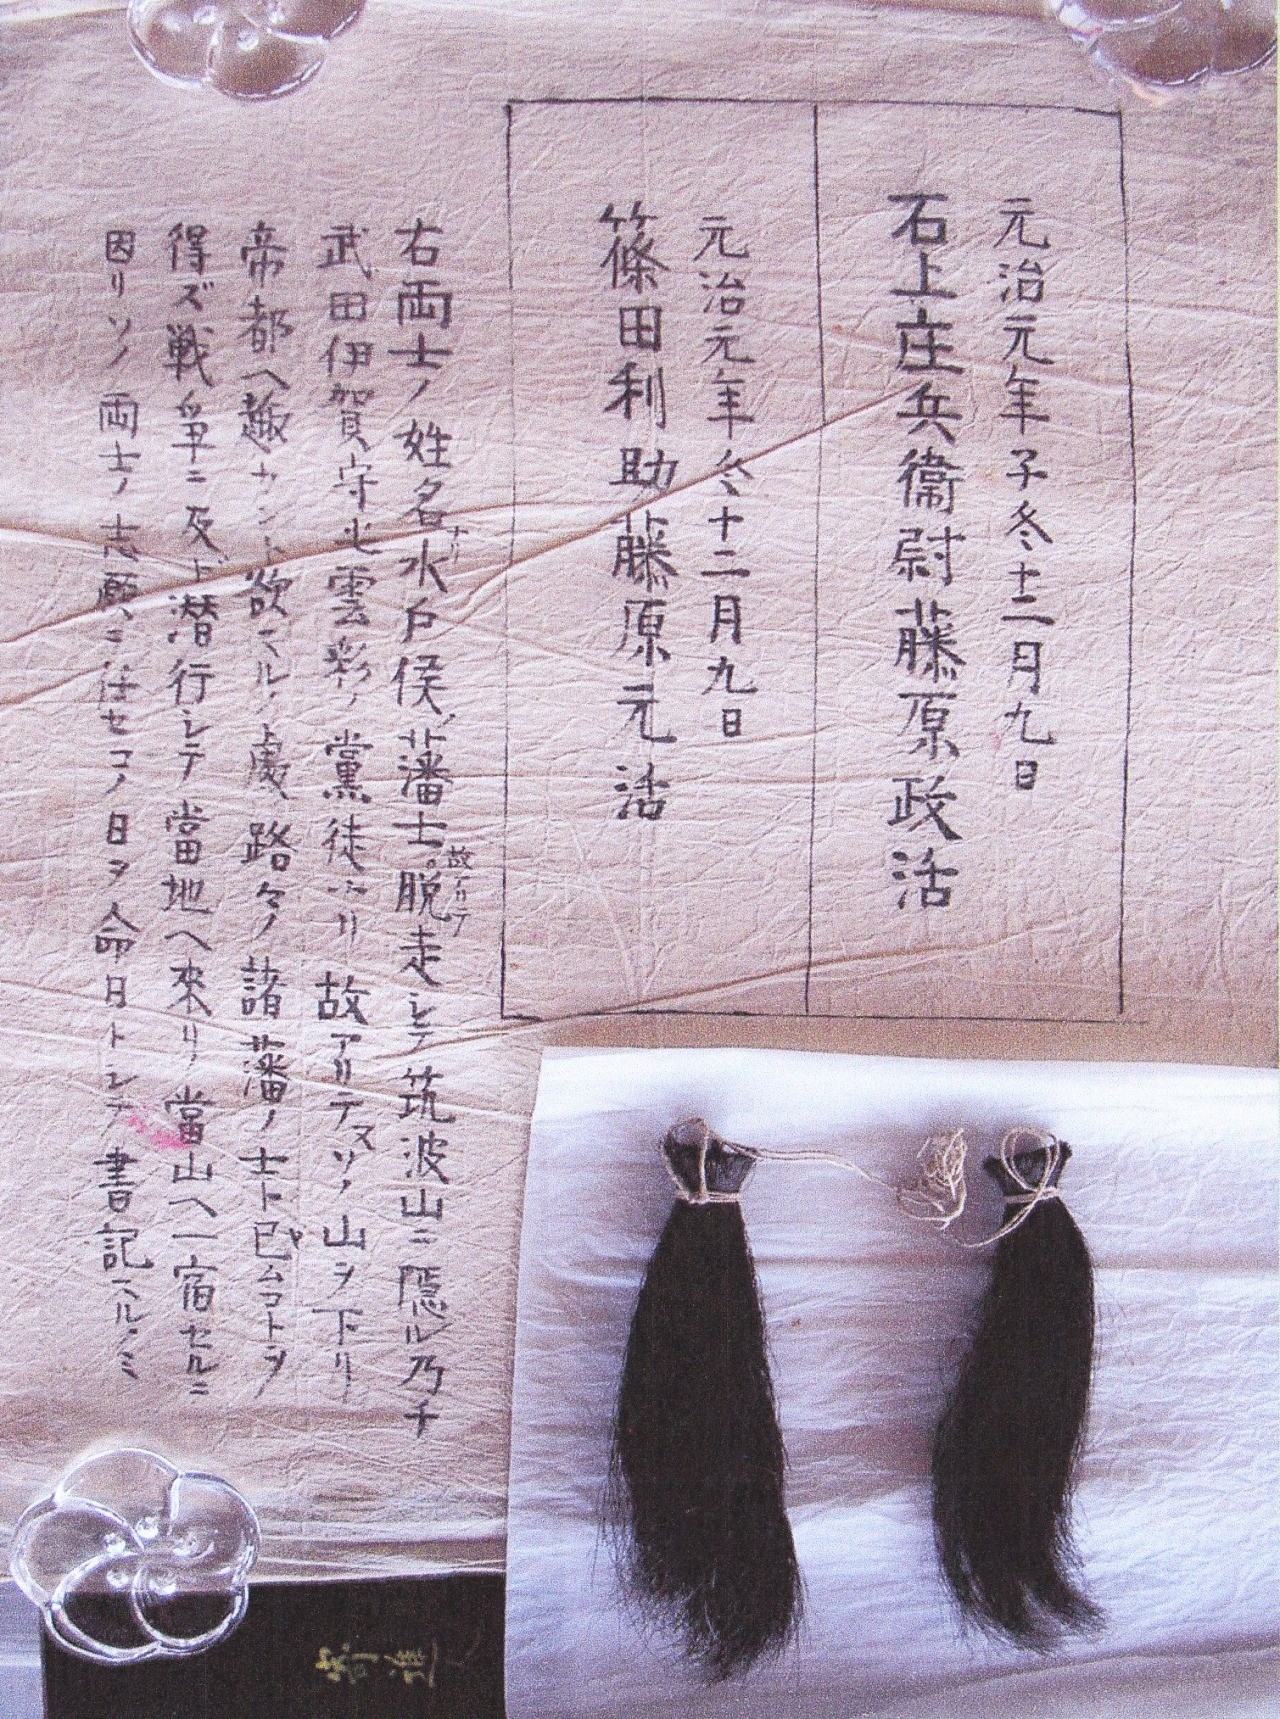 元治元年子冬十二月九日
石上庄兵衛尉藤原政活
元治元年冬十二月九日
篠田利助藤原元活
右両士ノ姓名ナリ水戸侯ノ藩士。故有テ脱走シテ筑波山ニ隠ル乃チ
武田伊賀守正雲彩ノ黨徒ナリ故アリテソノ山ヲ下リ
帝都ヘ趣カント欲スルノ處路々ノ諸藩ノ士ト已ムコトヲ
得ズ戦争ニ及ド潜行シテ當地ヘ來リ當山ヘ一宿セルニ
因リソノ両士ノ志願ニ任セコノ日ヲ命日トシテ書記スルノミ